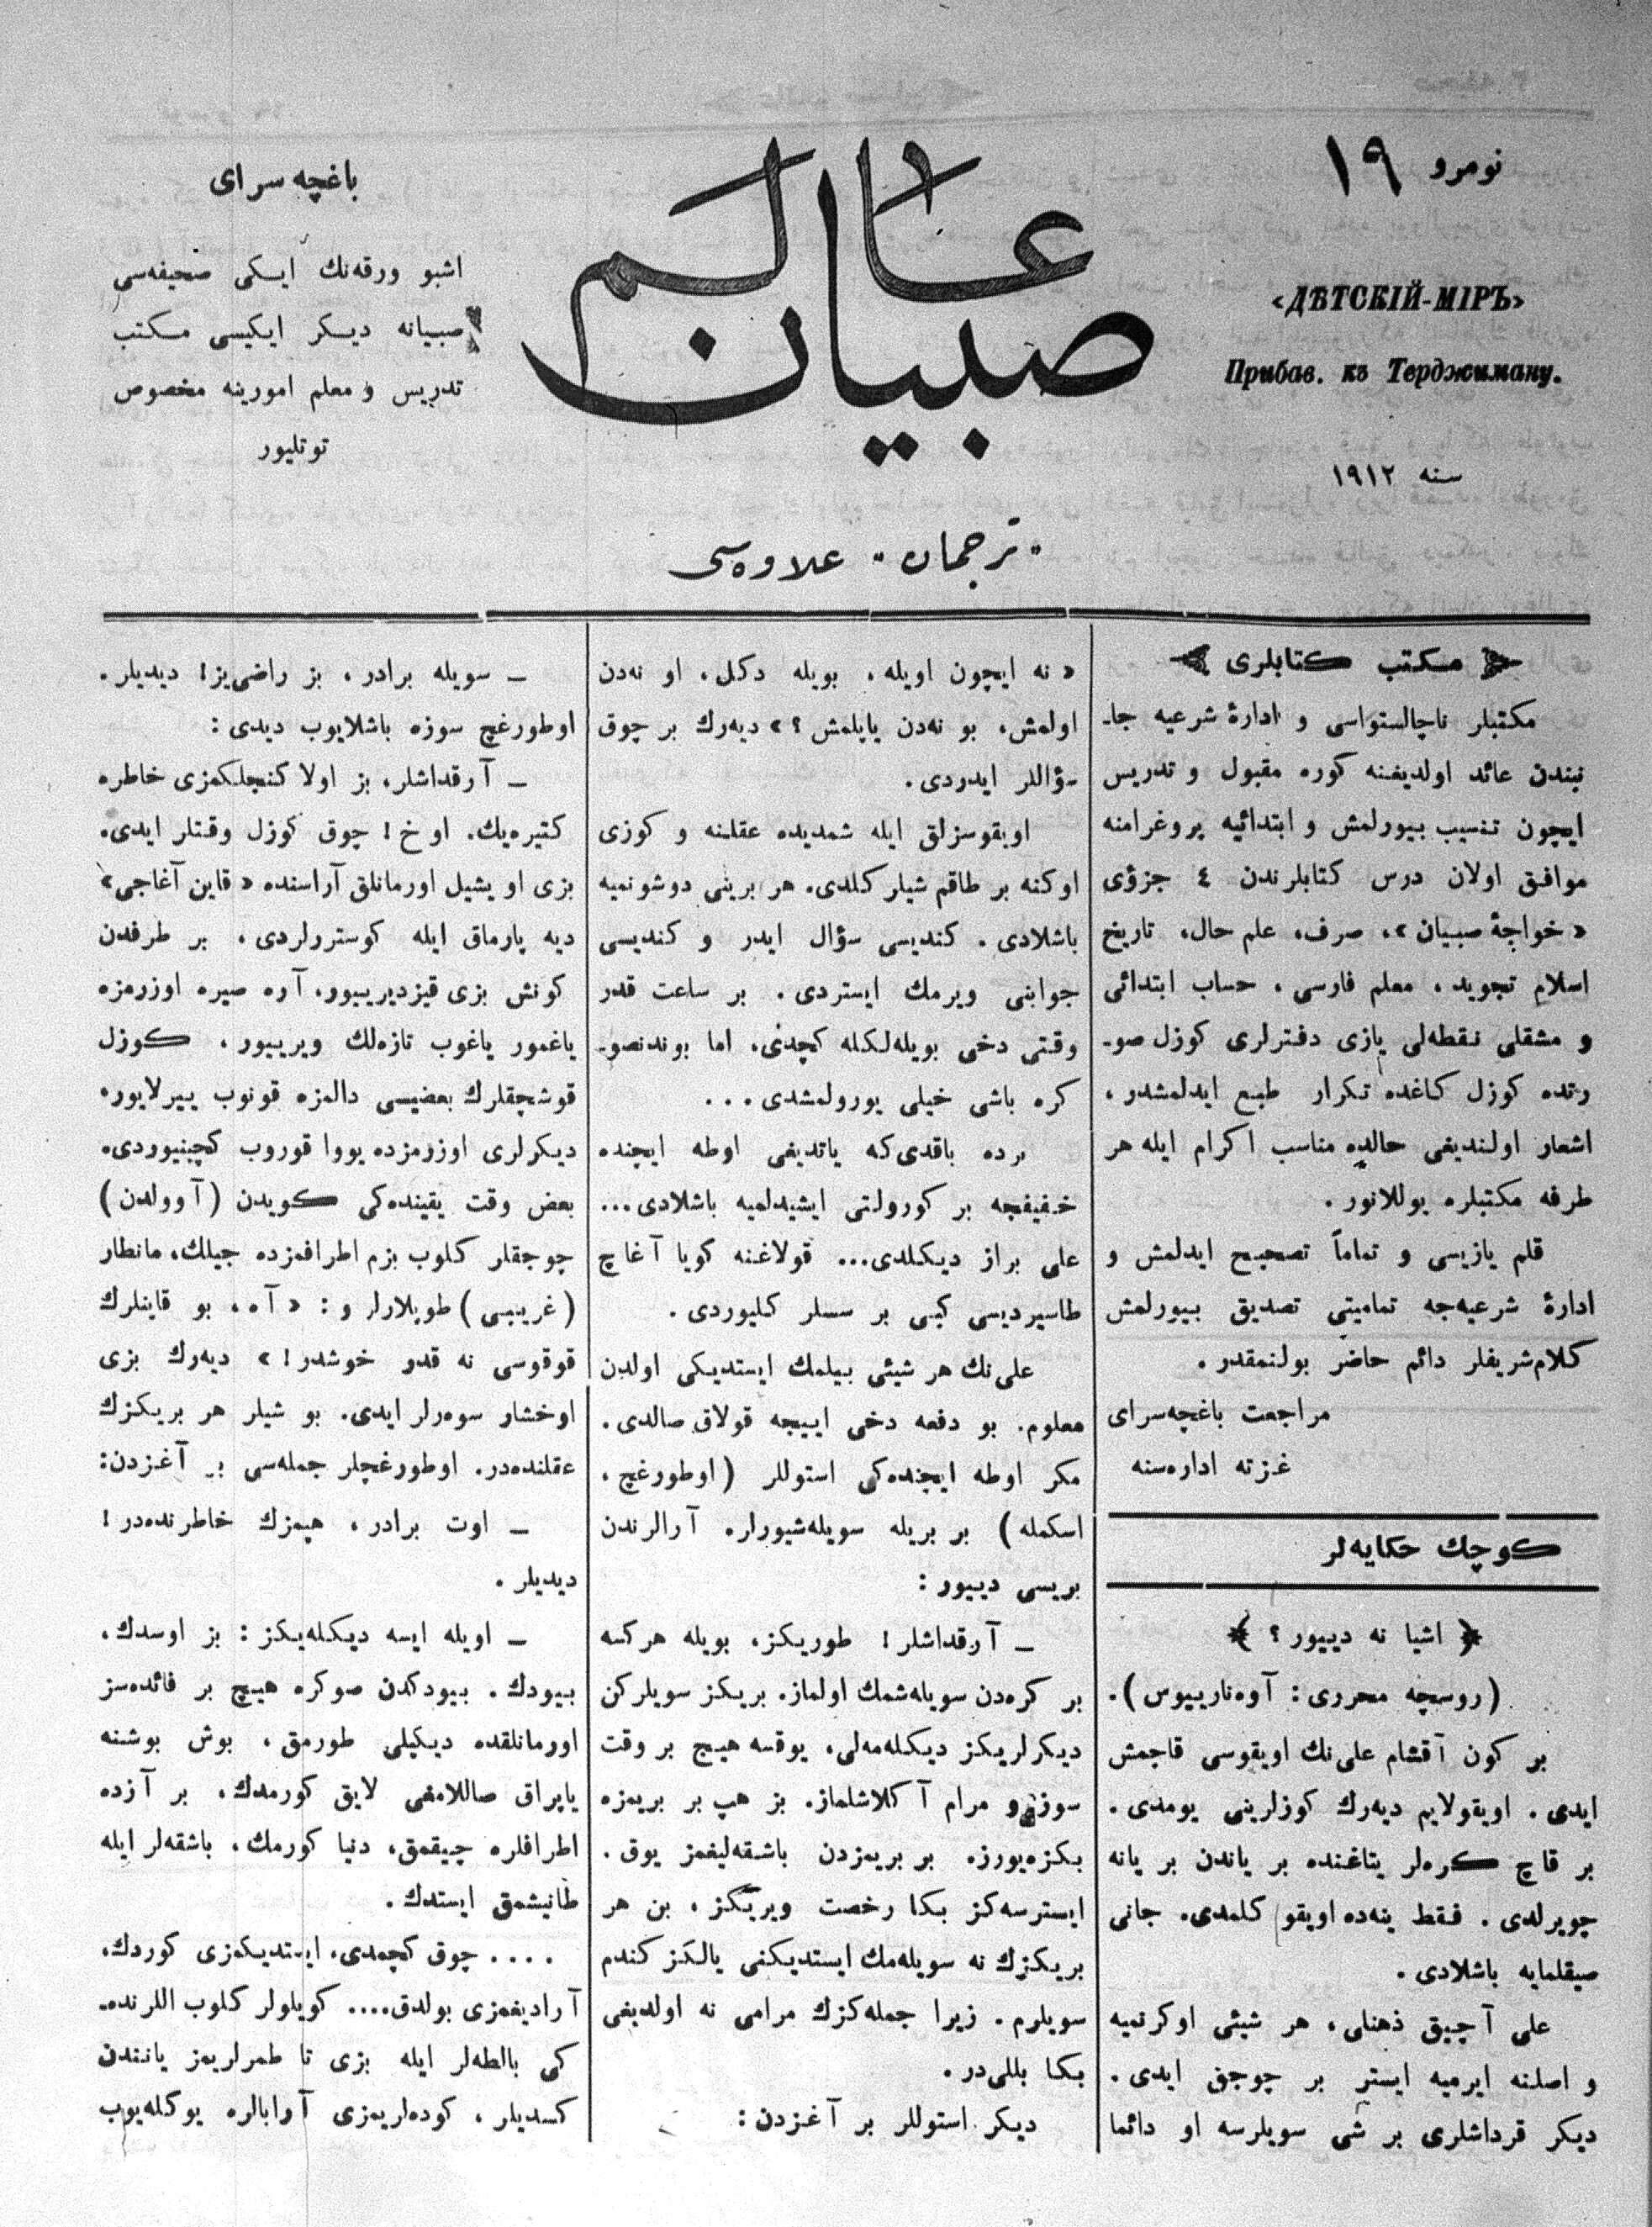 نومرو ١٩
«ДѢТСКІЙ-МІРЪ»
Прибав. къ Терджиману.
سنه ١٩١٢
عالم صبیان
"ترجمان" علاوه‌سی
باغچه سرای
اشبو ورقه‌نك ایكی صحیفه‌سی
صبیانه دیكر ایكیسی مكتب
تدریس و معلم امورینه مخصوص
توتلیور
مكتب كتابلری
مكتبلر ناچالستواسی و ادارۀ شرعیه جا-
نبندن عائد اولدیغنه كوره مقبول و تدریس
ایچون تنسیب بیورلمش و ابتدائیه پروغرامنه
موافق اولان درس كتابلرندن ٤ جزؤی
«خواجۀ صبیان»، صرف، علم حال، تاریخ
اسلام تجوید، معلم فارسی، حساب ابتدائی
و مشقلی نقطه‌لی یازی دفترلری كوزل صو-
رتده كوزل كاغده تكرار طبع ایدلمشدر،
اشعار اولندیغی حالده مناسب اكرام ایله هر
طرفه مكتبلره یوللانور.
قلم یازیسی و تماماً تصحیح ایدلمش و
ادارۀ شرعیه‌جه تمامیتی تصدیق بیورلمش
كلام‌شریفلر دائم حاضر بولنمقدر.
مراجعت باغچه‌سرای
غزته اداره‌سنه
كوچك حكایه‌لر
﴿ اشیا نه دییور؟ ﴾
(روسچه محرری: آوه‌نارییوس).
بر كون آقشام علی‌نك اویقوسی قاچمش
ایدی. اویقولایم دیه‌رك كوزلرینی یومدی.
بر قاچ كره‌لر یتاغنده بر یاندن بر یانه
چویرلدی. فقط ینه‌ده اویقو كلمدی. جانی
صیقلمایه باشلادی.
علی آچیق ذهنلی، هر شیئی اوكرنمیه
و اصلنه ایرمیه ایستر بر چوجق ایدی.
دیكر قرداشلری بر شی سویلرسه او دائما
«نه ایچون اویله، بویله دكل، او نه‌دن
اولمش، بو نه‌دن یاپلمش؟» دیه‌رك بر چوق
سؤاللر ایدردی.
اویقوسزلق ایله شمدیده عقلنه و كوزی
اوكنه بر طاقم شیلر كلدی. هر برینی دوشونمیه
باشلادی. كندیسی سؤال ایدر و كندیسی
جوابنی ویرمك ایستردی. بر ساعت قدر
وقتی دخی بویله‌لكله كچدی، اما بوندنصو-
كره باشی خیلی یورولمشدی...
برده باقدی‌كه یاتدیغی اوطه ایچنده
خفیفچه بر كورولتی ایشیدلمیه باشلادی...
علی براز دیكلدی... قولاغنه كویا آغاچ
طاسیردیسی كبی بر سسلر كلیوردی.
علی‌نك هر شیئی بیلمك ایستدیكی اولدن
معلوم. بو دفعه دخی اییجه قولاق صالدی.
مكر اوطه ایچنده‌كی استوللر (اوطورغچ،
اسكمله) بر بریله سویله‌شیورلر. آرالرندن
بریسی دییور:
ــ آرقداشلر! طوریكز، بویله هركسه
بر كره‌دن سویله‌شمك اولماز. بریكز سویلركن
دیكرلریكز دیكله‌مه‌لی، یوقسه هیچ بر وقت
سوزدن مرام آكلاشلماز. بز هپ بر بریمزه
بكزه‌یورز، بر بریمزدن باشقه‌لیغمز یوق.
ایسترسه‌كز بكا رخصت ویریكز، بن هر
بریكزك نه سویله‌مك ایستدیكنی یالكز كندم
سویلرم. زیرا جمله‌كزك مرامی نه اولدیغی
بكا بللی‌در.
دیكر استوللر بر آغزدن:
ــ سویله برادر، بز راضی‌یز! دیدیلر.
اوطورغچ سوزه باشلایوب دیدی:
ــ آرقداشلر، بز اولا كنجلكمزی خاطره
كتیره‌یك. اوخ! چوق كوزل وقتلر ایدی.
بزی او یشیل اورمانلق آراسنده «قاین آغاجی»
دیه پارماق ایله كوسترولردی، بر طرفدن
كونش بزی قیزدیرییور، آره صیره اوزرمزه
یاغمور یاغوب تازه‌لك ویرییور، كوزل
قوشچقلرك بعضیسی دالمزه قونوب ییرلایور،
دیكرلری اوزرمزده یووا قوروب كچینیوردی.
بعض وقت یقینده‌كی كویدن (آوولدن)
چوجقلر كلوب بزم اطرافمزده جیلك، مانطار
(غریبی) طوپلارلر و: «آه، بو قاینلرك
قوقوسی نه قدر خوشدر!» دیه‌رك بزی
اوخشار سوه‌رلر ایدی. بو شیلر هر بریكزك
عقلنده‌در. اوطورغچلر جمله‌سی بر آغزدن:
ــ اوت برادر، هپمزك خاطرنده‌در!
دیدیلر.
ــ اویله ایسه دیكله‌یكز: بز اوسدك،
بیودك. بیودكدن صوكره هیچ بر فائده‌سز
اورمانلقده دیكیلی طورمق، بوش بوشنه
یاپراق صاللامغی لایق كورمدك، بر آزده
اطرافلره چیقمق، دنیا كورمك، باشقه‌لر ایله
طانیشمق ایستدك.
.... چوق كچمدی، ایستدیكمزی كوردك،
آرادیغمزی بولدق.... كویلولر كلوب اللرنده-
كی بالطه‌لر ایله بزی تا طمرلریمز یانندن
كسدیلر، كوده‌لریمزی آرابالره یوكله‌یوب